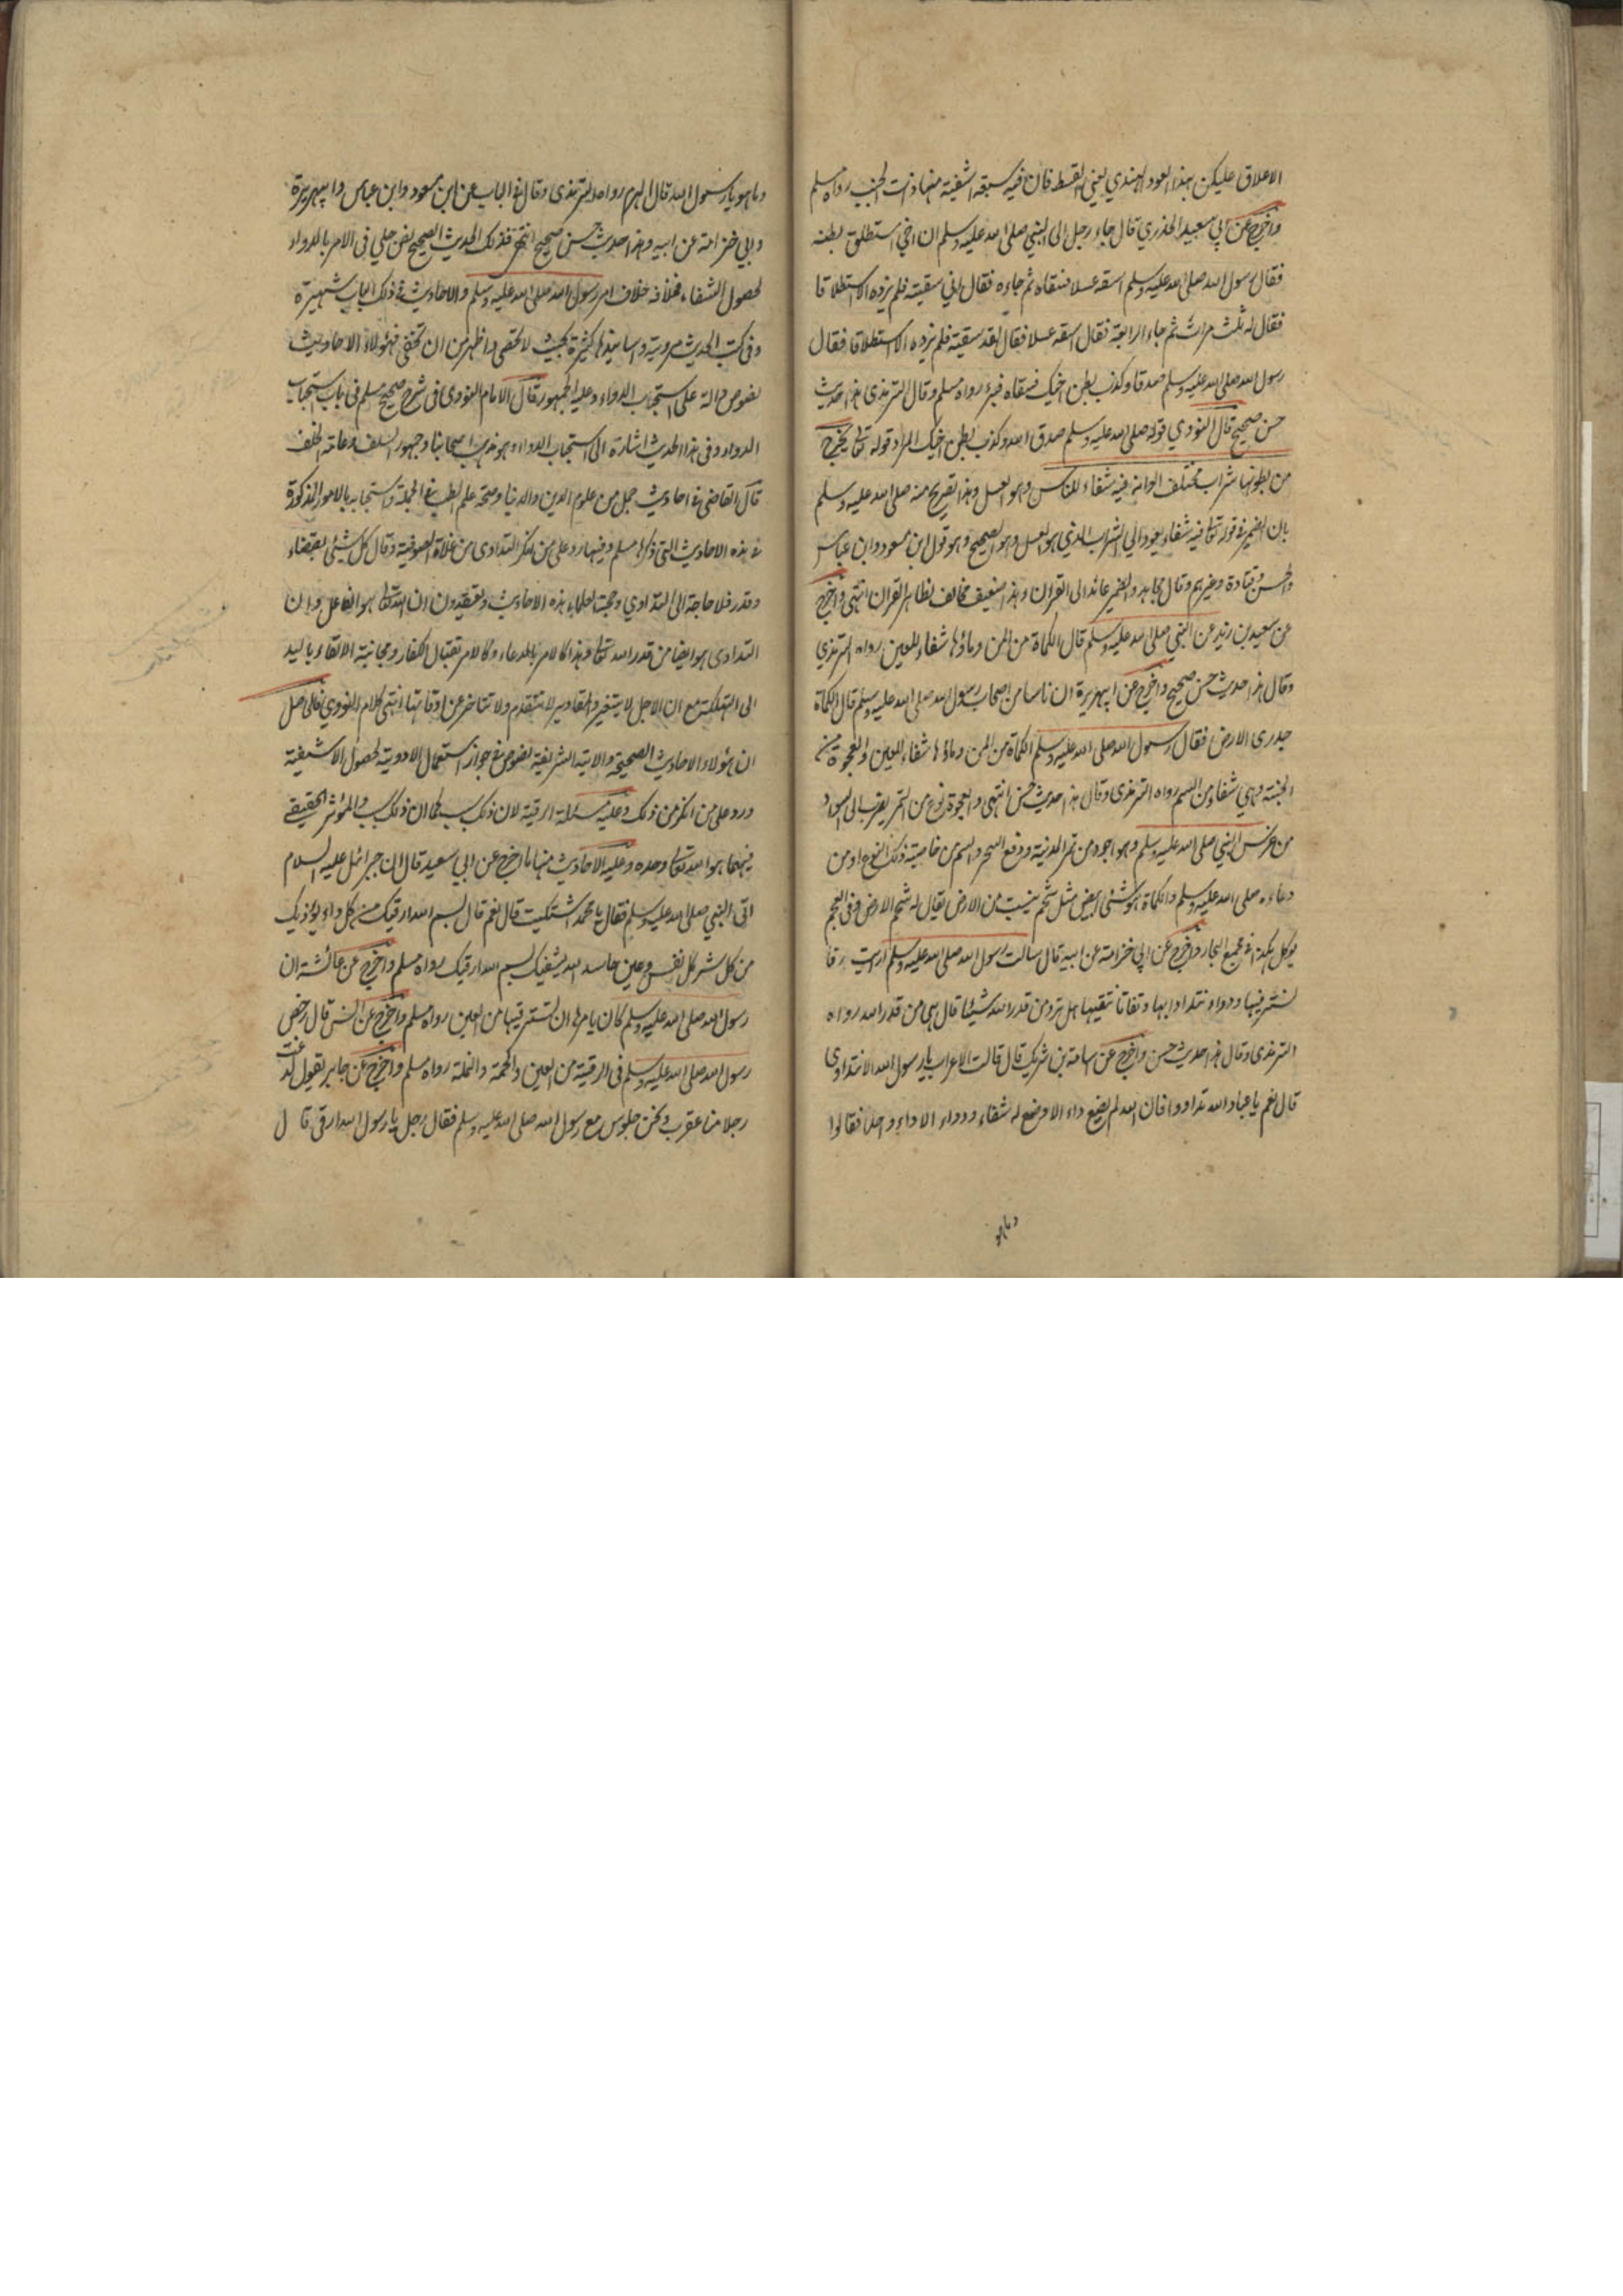 الاعلاق عليكن بهذا العود الهندي يعني القسط فان فيه سبعة اشفية منها ذات الجنب رواه مسلم
واخرج عن ابي سعيد الخدري قال جاء رجل الى النبي صلى الله عليه وسلم ان اخي استطلق بطنه
فقال رسول الله صلى الله عليه وسلم اسقه عسلا فسقاه ثم جاءه فقال اني سقيته فلم يزده الا استطلاقا
فقال له ثلث مرات ثم جاء الرابعة فقال اسقه عسلا فقال لقد سقيته فلم يزده الا استطلاقا فقال
رسول الله صلى الله عليه وسلم صدقا وكذب بطن اخيك فسقاه فبرئ رواه مسلم وقال الترمذى هذا حديث
حسن صحيح قال النووي قوله صلى الله عليه وسلم صدق الله وكذب بطن اخيك المراد قوله تعالى يخرج
من بطونها شراب مختلف الوانه فيه شفاء للناس وهو العسل وهذا تصريح منه صلى الله عليه وسلم
بان الضمير فى قوله تعالى فيه شفاء يعود الى الشراب الذي هو العسل وهو الصحيح وهو قول ابن مسعود وابن عباس
والحسن وقتادة وغيرهم وقال مجاهد والضمير عائد الى القران وهذا ضعيف مخالف لظاهر القران انتهى واخرج
عن سعيد بن زيد عن النبي صلى الله عليه وسلم قال الكماة من المن وماؤها شفاء للعين رواه الترمذي
وقال هذا حديث حسن صحيح واخرج عن ابيهريرة ان ناسا من اصحاب رسول الله صلى الله عليه وسلم قال الكماة
جدرى الارض فقال رسول الله صلى الله عليه وسلم الكماة من المن وماؤها شفاء للعين والعجوة من
الجنة وهي شفاء من السم رواه الترمذى وقال هذا حديث حسن انتهى والعجوة نوع من التمر يضرب الى السواد
من غرس النبي صلى الله عليه وسلم وهو اجود من تمر المدينة ودفع السحر والسم من خاصية ذلك النوع او من
دعاءه صلى الله عليه وسلم والكماة هو شئى ابيض مثل شحم ينبت من الارض يقال له شحم الارض وفى العجم
يوكل هكذا فى جميع البخار واخرج عن ابي خزامة عن ابيه قال سالت رسول الله صلى الله عليه وسلم ارايت رقا
نسترقيها ودواء نتداوا بها وتقاة نتقيها هل ترد من قدر الله شيئا قال هى من قدر الله رواه
الترمذى وقال هذا حديث حسن واخرج عن اسامة بن شريك قال قالت الاعراب يا رسول الله الا نتداوى
قال نعم يا عباد الله تداووا فان الله لم يضع داء الا وضع له شفاء ودواء الا داء واحد فقالوا
وما هو
وما هو يا رسول الله قال الهرم رواه الترمذى وقال فى الباب عن ابن مسعود وابن عباس وابيهريرة
وابي خزامة عن ابيه وهذا حديث حسن صحيح انتهى فذلك الحديث الصحيح نص جلي فى الامر بالدواء
لحصول الشفاء فخلافه خلاف امر رسول الله صلى الله عليه وسلم والاحاديث فى ذلك الباب شهيرة
وفى كتب الحديث مروية واسانيدها كثيرة بحيث لا تحصى واظهر من ان تخفى فهؤلاء الاحاديث
نصوص دالة على استحباب الدواء وعليه الجمهور قال الامام النووى فى شرح صحيح مسلم فى باب استحباب
الدواء وفى هذا الحديث اشارة الى استحباب الدواء وهو مذهب اصحابنا وجمهور السلف وعامة الخلف
قال القاضى فى احاديث جمل من علوم الدين والدنيا وصحة علم الطب فى الجملة واستحبابه بالامور المذكورة
فى هذه الاحاديث التى ذكرها مسلم وفيها رد على من انكر التداوى من غلاة الصوفية وقال كل شيئى بقضاء
وقدر فلا حاجة الى التداوي وحجة العلماء هذه الاحاديث ويعتقدون ان الله تعالى هو الفاعل وان
التداوى هو ايضا من قدر الله تعالى وهذا كالامر بالدعاء وكالامر بقتال الكفار ومجانبة الالقاء باليد
الى التهلكة مع ان الاجل لا يتغير والمقادير لا تتقدم ولا تتاخر عن اوقاتها انتهى كلام النووي فالحاصل
ان هؤلاء الاحاديث الصحيحة والاية الشريفة نصوص فى جواز استعمال الادوية لحصول الاشفية
ورد على من انكر من ذلك وعليه مسئلة الرقية لان ذلك سبب كما ان ذلك سبب والمؤثر الحقيقي
فيهما هو الله تعالى وحده وعليه الاحاديث منها ما اخرج عن ابي سعيد قال ان جبرائل عليه السلام
اتى النبي صلى الله عليه وسلم فقال يا محمد اشتكيت قال نعم قال بسم الله ارقيك من كل داء يؤذيك
من كل شر كل نفس وعين حاسد الله يشفيك بسم الله ارقيك رواه مسلم واخرج عن عائشة ان
رسول الله صلى الله عليه وسلم كان يامرها ان تسترقيها من العين رواه مسلم واخرج عن انس قال رخص
رسول الله صلى الله عليه وسلم فى الرقية من العين والحمة والنملة رواه مسلم واخرج عن جابر يقول لدغت
رجلا منا عقرب ونحن جلوس مع رسول الله صلى الله عليه وسلم فقال رجل يا رسول الله ارقى قال